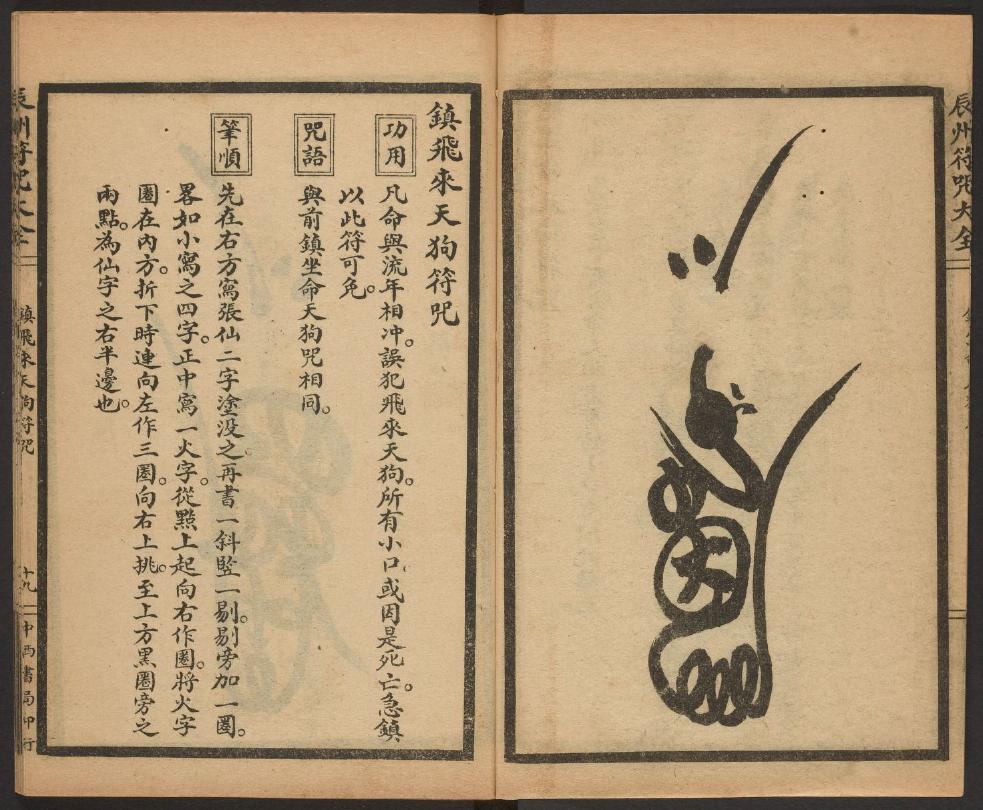 辰州符咒大全
鎮飛來天狗符咒
功用
凡命與流年相冲。誤犯飛來天狗。所有小口。或因是死亡。急鎮
以此符可免。
咒語
與前鎮坐命天狗咒相同。
筆順
先在右方寫張仙二字塗没之。再書一斜竖一剔。剔旁加一圈。
畧如小寫之四字。正中寫一火字。從點上起向右作圈。將火字
圈在內方。折下時連向左作三圈。向右上挑。至上方黑圈旁之
兩點。為仙字之右半邊也。
辰州符咒大全
鎮飛來天狗符咒
十九
中西書局印行